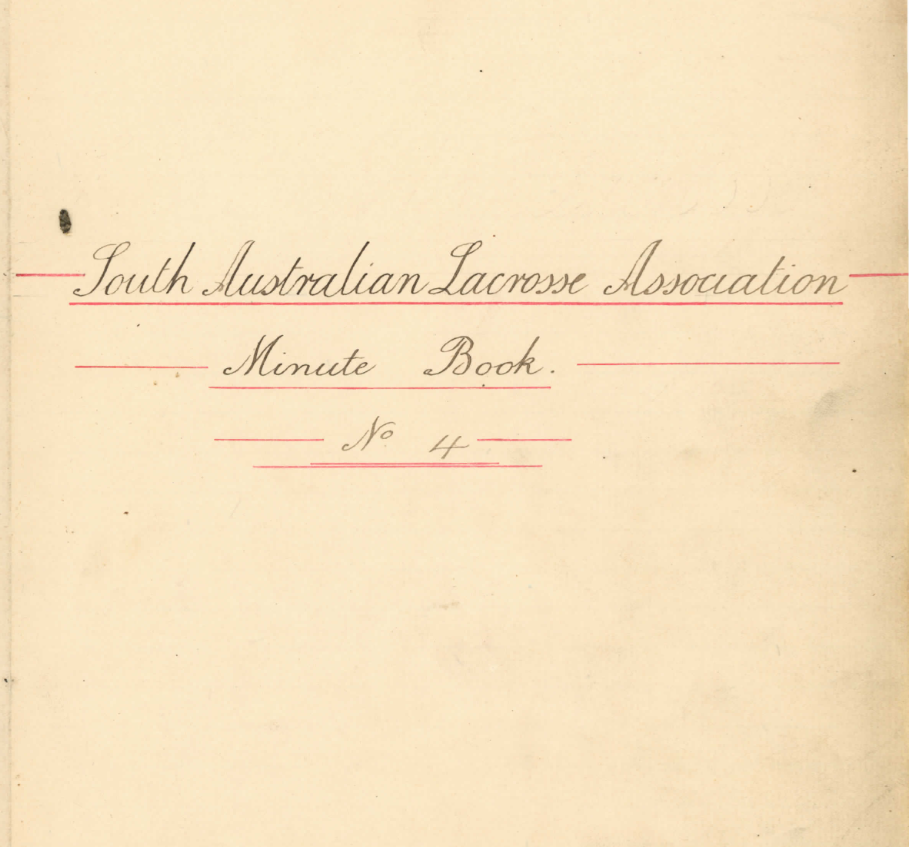 South Australian Lacrosse Association
Minute Book.
No 4